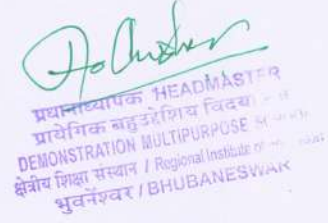 प्रधानाध्यापक HEADMASTER
प्रायोगिक बहुउद्देशीय विद्या
DEMONSTRATION MULTIPURPOSE
क्षेत्रीय शिक्षा संस्थान / Regional Institute of
भुवनेश्वर / BHUBANESWAR